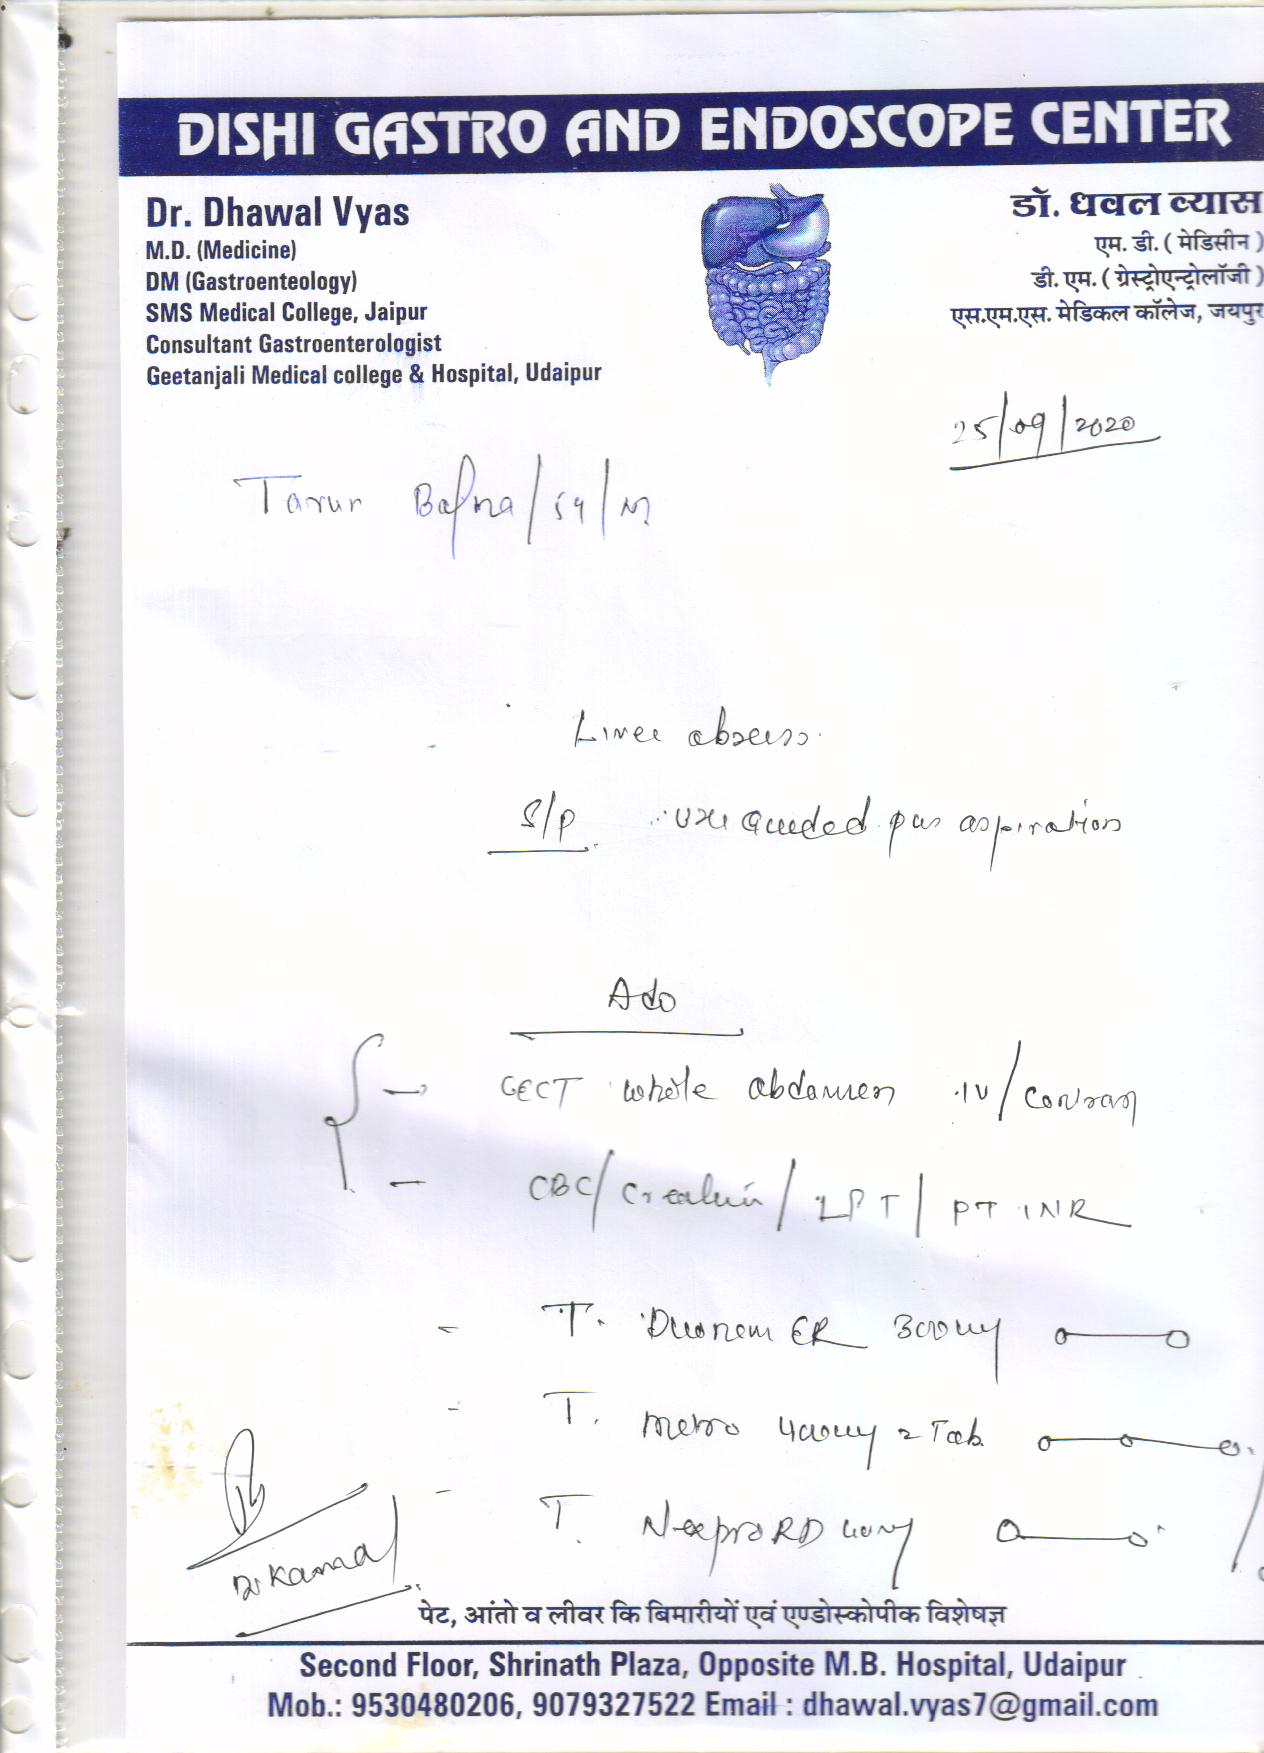 DISHI GASTRO AND ENDOSCOPE CENTER
Dr. Dhawal Vyas
M.D. (Medicine)
DM (Gastroenteology)
SMS Medical College, Jaipur
Consultant Gastroenterologist
Geetanjali Medical college & Hospital, Udaipur
डॉ. धवल व्यास
एम. डी. ( मेडिसीन )
डी. एम. ( ग्रेस्ट्रोएन्ट्रोलॉजी )
एस.एम.एस. मेडिकल कॉलेज, जयपुर
25/09/2020
Tarun Bafna / 54 / M
Liver abscess
S/P guided pus aspiration
Ado
CECT whole abdomen IV/Contrast
CBC/Creatinin / LFT / PT INR
T. ER 300mg
T. Metro 400mg 2 Tab
T. Nexpro RD 40mg
Dr Kamal
पेट, आंतो व लीवर कि बिमारीयों एवं एण्डोस्कोपीक विशेषज्ञ
Second Floor, Shrinath Plaza, Opposite M.B. Hospital, Udaipur
Mob.: 9530480206, 9079327522 Email : dhawal.vyas7@gmail.com